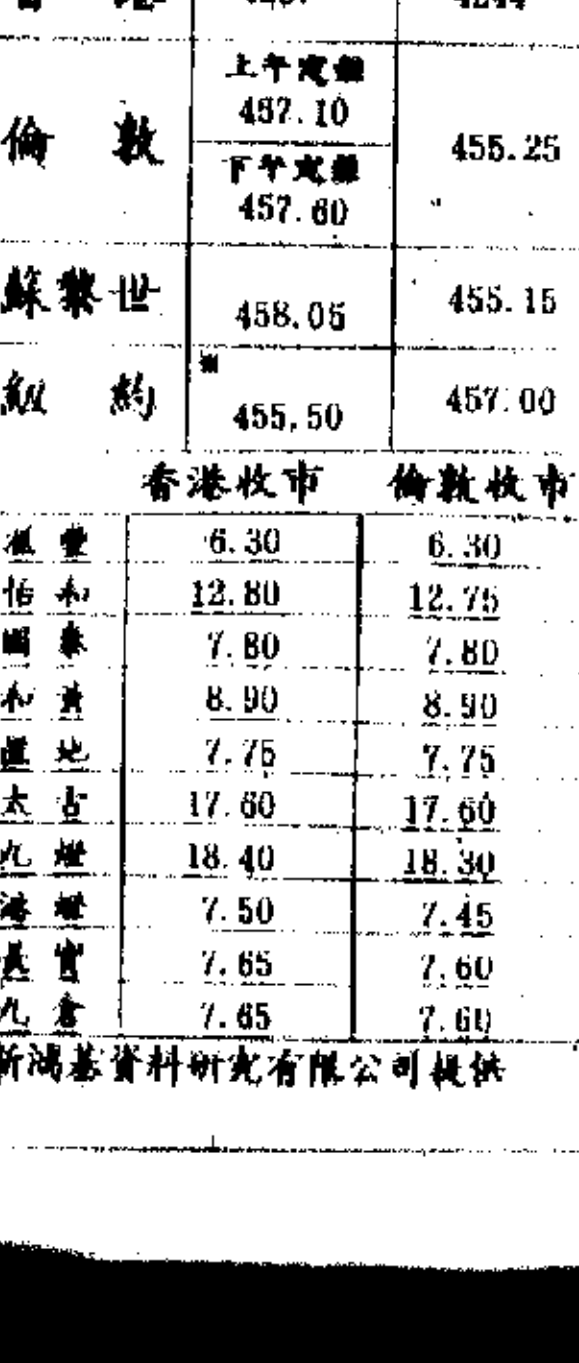 港
倫敦 上午定盤 457.10 455.25
下午定盤 457.60
蘇黎世 458.05 455.15
紐約 455.50 457.00
香港收市 倫敦收市
滙豐 6.30 6.30
怡和 12.80 12.75
國泰 7.80 7.80
和黃 8.90 8.90
置地 7.75 7.75
太古 17.60 17.60
九燈 18.40 18.30
港燈 7.50 7.45
長實 7.65 7.60
九倉 7.65 7.60
新鴻基資料研究有限公司提供